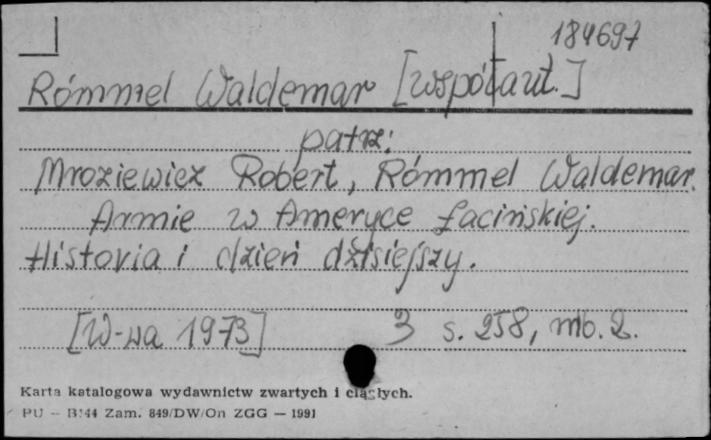 184697
Rómmel Waldemar [współaut.]
patrz:
Mroziewicz Robert, Rómmel Waldemar.
Armie w Ameryce Łacińskiej.
Historia i dzień dzisiejszy.
[W-wa 1973] 3 s. 258, nlb. 2.
Karta katalogowa wydawnictw zwartych i ciągłych.
PU – B/44 Zam. 849/DW/On ZGG — 1991